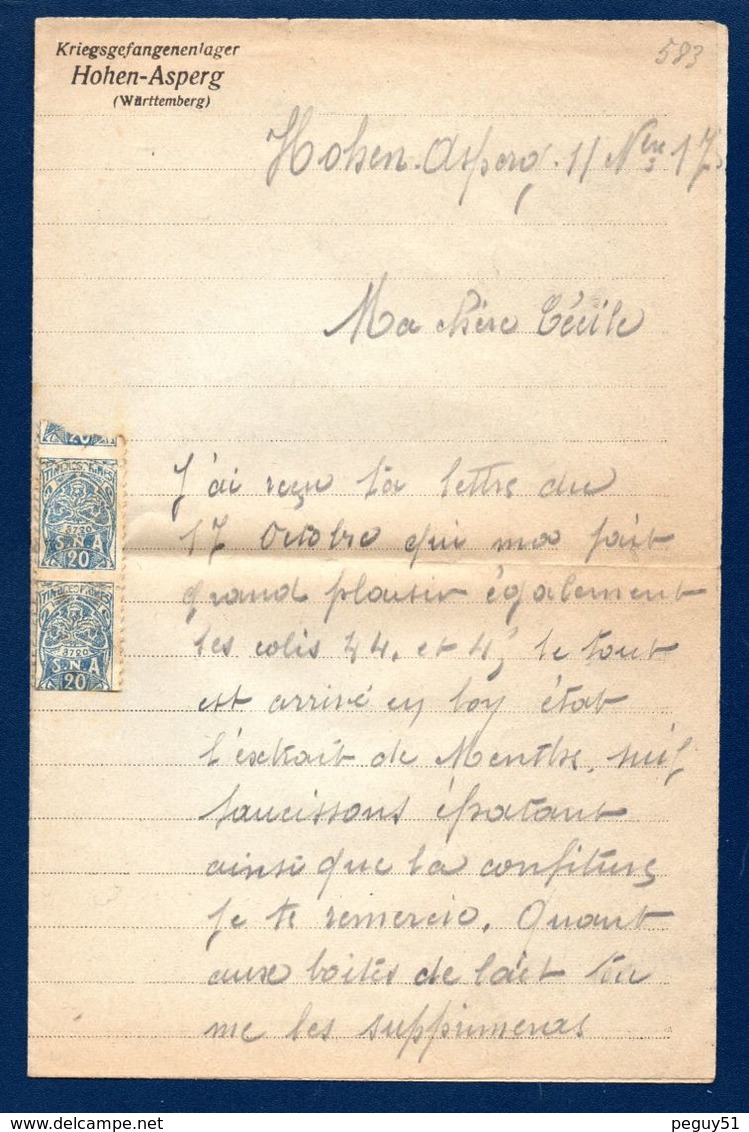 Kriegsgefangenenlager
Hohen-Asperg
(Württemberg)
583
Hohen-Asperg. 11 Nbre 17
Ma chère Cécile
J'ai reçu ta lettre du
17 Octobre qui ma fait
grand plaisir également
les colis 44. et 45 le tout
est arrivé en bon état
l'extrait de Menthe,
saucissons épatant
ainsi que la confiture
je te remercie. Quant
aux boites de lait tu
me les supprimeras
20
TIMBRES PRIMES
8720
S.N.A
20
TIMBRES PRIMES
8720
S.N.A
20
peguy51